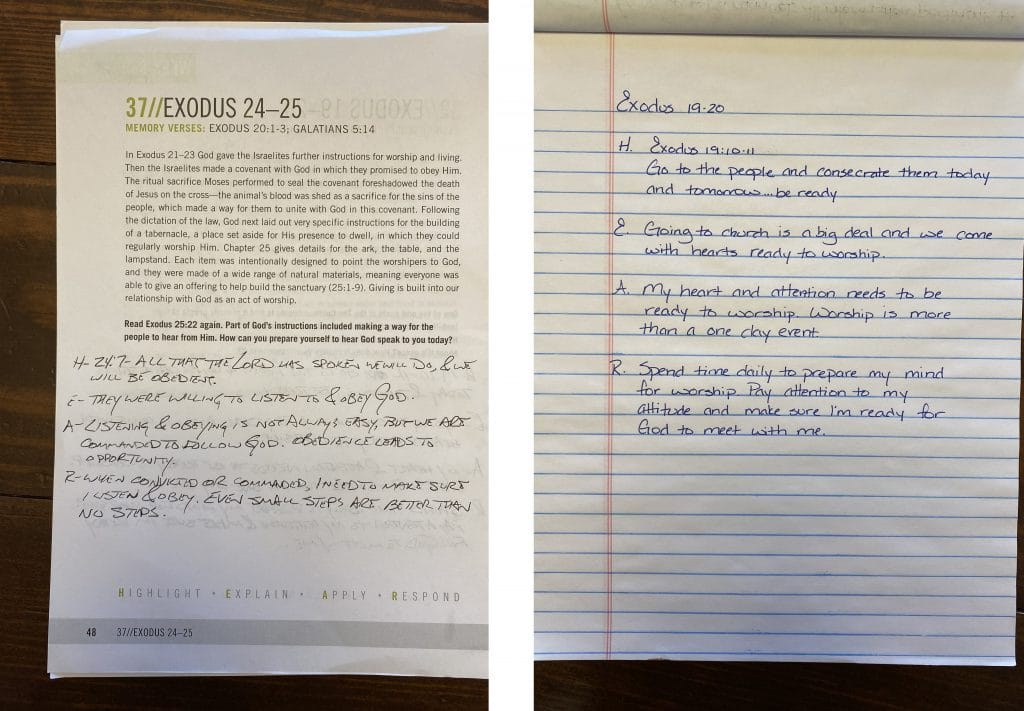 37//EXODUS 24–25
MEMORY VERSES: EXODUS 20:1-3; GALATIANS 5:14
In Exodus 21–23 God gave the Israelites further instructions for worship and living.
Then the Israelites made a covenant with God in which they promised to obey Him.
The ritual sacrifice Moses performed to seal the covenant foreshadowed the death
of Jesus on the cross—the animal's blood was shed as a sacrifice for the sins of the
people, which made a way for them to unite with God in this covenant. Following
the dictation of the law, God next laid out very specific instructions for the building
of a tabernacle, a place set aside for His presence to dwell, in which they could
regularly worship Him. Chapter 25 gives details for the ark, the table, and the
lampstand. Each item was intentionally designed to point the worshipers to God,
and they were made of a wide range of natural materials, meaning everyone was
able to give an offering to help build the sanctuary (25:1-9). Giving is built into our
relationship with God as an act of worship.
Read Exodus 25:22 again. Part of God's instructions included making a way for the
people to hear from Him. How can you prepare yourself to hear God speak to you today?
H- 24:7- ALL THAT THE LORD HAS SPOKEN WE WILL DO, & WE
WILL BE OBEDIENT.
E- THEY WERE WILLING TO LISTEN TO & OBEY GOD.
A- LISTENING & OBEYING IS NOT ALWAYS EASY, BUT WE ARE
COMMANDED TO FOLLOW GOD. OBEDIENCE LEADS TO
OPPORTUNITY.
R- WHEN CONVICTED OR COMMANDED, I NEED TO MAKE SURE
I LISTEN & OBEY. EVEN SMALL STEPS ARE BETTER THAN
NO STEPS.
HIGHLIGHT • EXPLAIN • APPLY • RESPOND
48 37//EXODUS 24–25
Exodus 19-20
H. Exodus 19:10-11
Go to the people and consecrate them today
and tomorrow...be ready
E. Going to church is a big deal and we come
with hearts ready to worship.
A. My heart and attention needs to be
ready to worship. Worship is more
than a one day event.
R. Spend time daily to prepare my mind
for worship. Pay attention to my
attitude and make sure I'm ready for
God to meet with me.